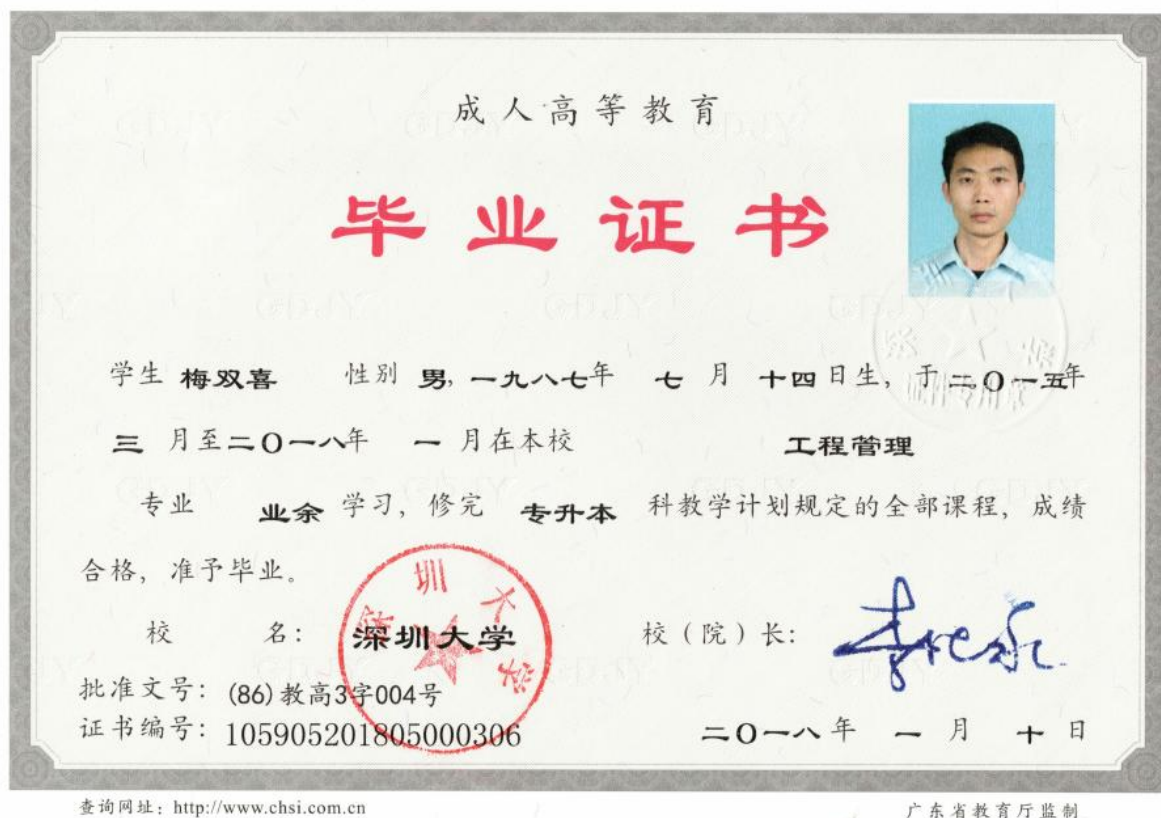 成人高等教育
毕业证书
学生 梅双喜 性别 男, 一九八七年 七 月 十四 日生, 于二〇一五年
三 月至二〇一八年 一 月在本校 工程管理
专业 业余 学习, 修完 专升本 科教学计划规定的全部课程, 成绩
合格, 准予毕业。
校 名: 深圳大学 校(院)长: 李清泉
深圳大学
批准文号: (86)教高3字004号
证书编号: 105905201805000306
二〇一八年 一 月 十 日
查询网址: http://www.chsi.com.cn 广东省教育厅监制